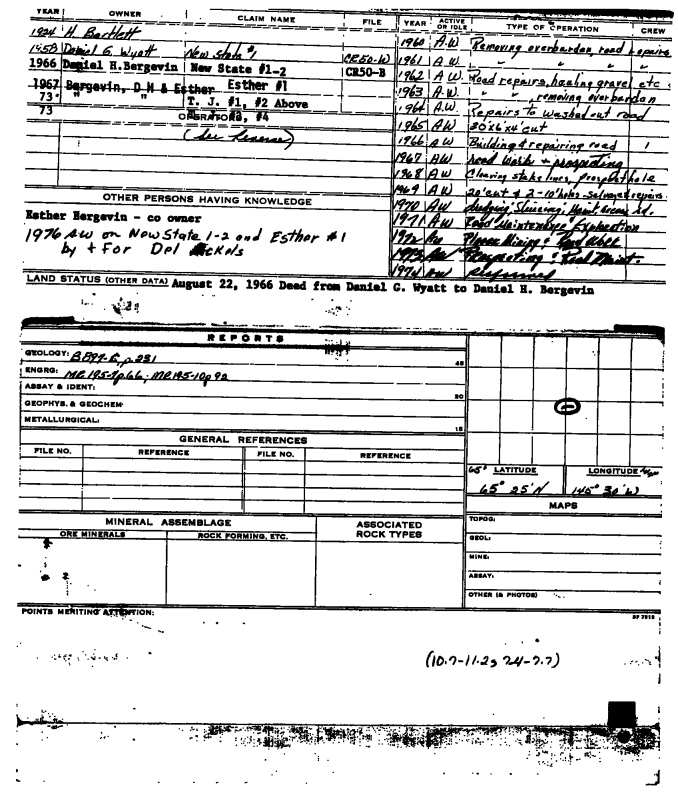 YEAR OWNER CLAIM NAME FILE YEAR ACTIVE OR IDLE TYPE OF OPERATION CREW
1924 H. Bartlett
1958 Daniel G. Wyatt New State #1 CR50-W
1966 Daniel H.Bergevin New State #1-2 CR50-B
1967 Bergevin, D H & Esther Esther #1
73 " " T. J. #1, #2 Above
73 #3, #4
OPERATORS
(See Reverse)
1960 A-W Removing overburden, road repairs
1961 A.W. " " " "
1962 A W. Road repairs, hauling gravel etc
1963 A.W. " ", removing overburden
1964 A.W. Repairs to washed out road
1965 A W 20'x6'x4' cut
1966 A W Building & repairing road 1
1967 A W road work + prospecting
1968 A W Clearing stake lines, prospect hole
1969 A.W. 20' cut & 2-10' holes
1970 A W
1971 A W Road Maintenance Exploration
1972 AW
1973 AW Prospecting & Road Maint.
1974 AW
OTHER PERSONS HAVING KNOWLEDGE
Esther Bergevin - co owner
1976 AW on New State 1-2 and Esther #1
by + For Del
LAND STATUS (OTHER DATA) August 22, 1966 Deed from Daniel G. Wyatt to Daniel H. Bergevin
REPORTS
GEOLOGY: p.231 45
ENGRG: MR195-7p66; MR195-10p92
ASSAY & IDENT: 30
GEOPHYS. & GEOCHEM.
METALLURGICAL: 15
GENERAL REFERENCES
FILE NO. REFERENCE FILE NO. REFERENCE
65° LATITUDE LONGITUDE
65° 25' N 145° 30' W
MAPS
TOPOG:
GEOL:
MINE:
ASSAY:
OTHER (& PHOTOS)
MINERAL ASSEMBLAGE
ORE MINERALS ROCK FORMING, ETC.
ASSOCIATED ROCK TYPES
POINTS MERITING ATTENTION:
(10.7-11.2, 7.4-7.7)